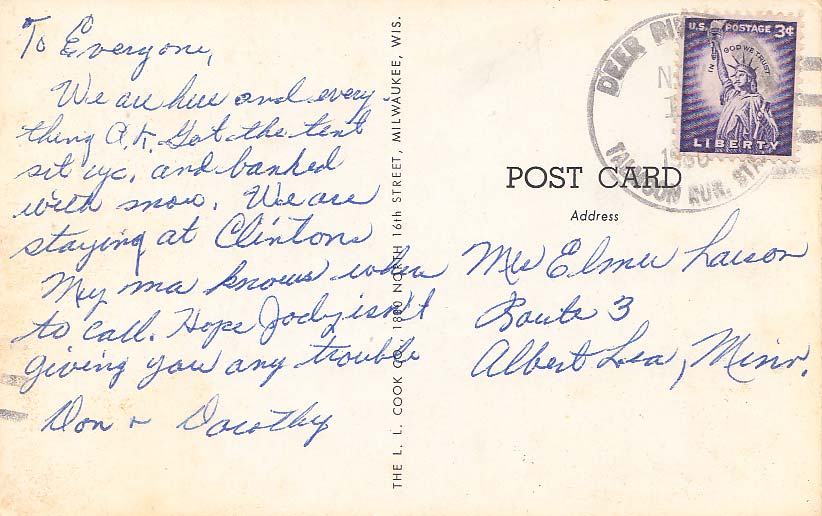 To Everyone,
We are here and every-
thing O.K. Got the tent
set up, and banked
with snow. We are
staying at Clintons
My ma knows when
to call. Hope Jody isn't
giving you any trouble
Don & Dorothy
THE L. L. COOK CO., 1800 NORTH 16th STREET, MILWAUKEE, WIS.
POST CARD
Address
Mrs Elmer Larson
Route 3
Albert Lea, Minn.
DEER
U.S. POSTAGE 3¢
IN GOD WE TRUST
LIBERTY